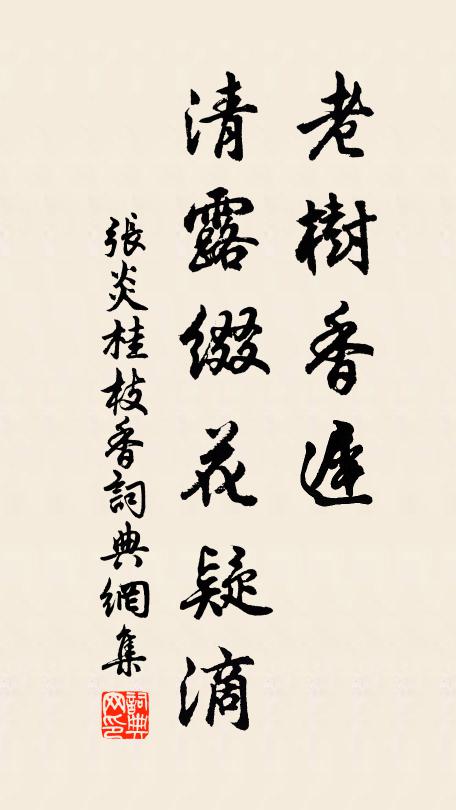 老樹香遲
清露綴花疑滴
張炎桂枝香詞典網集
詞典網印